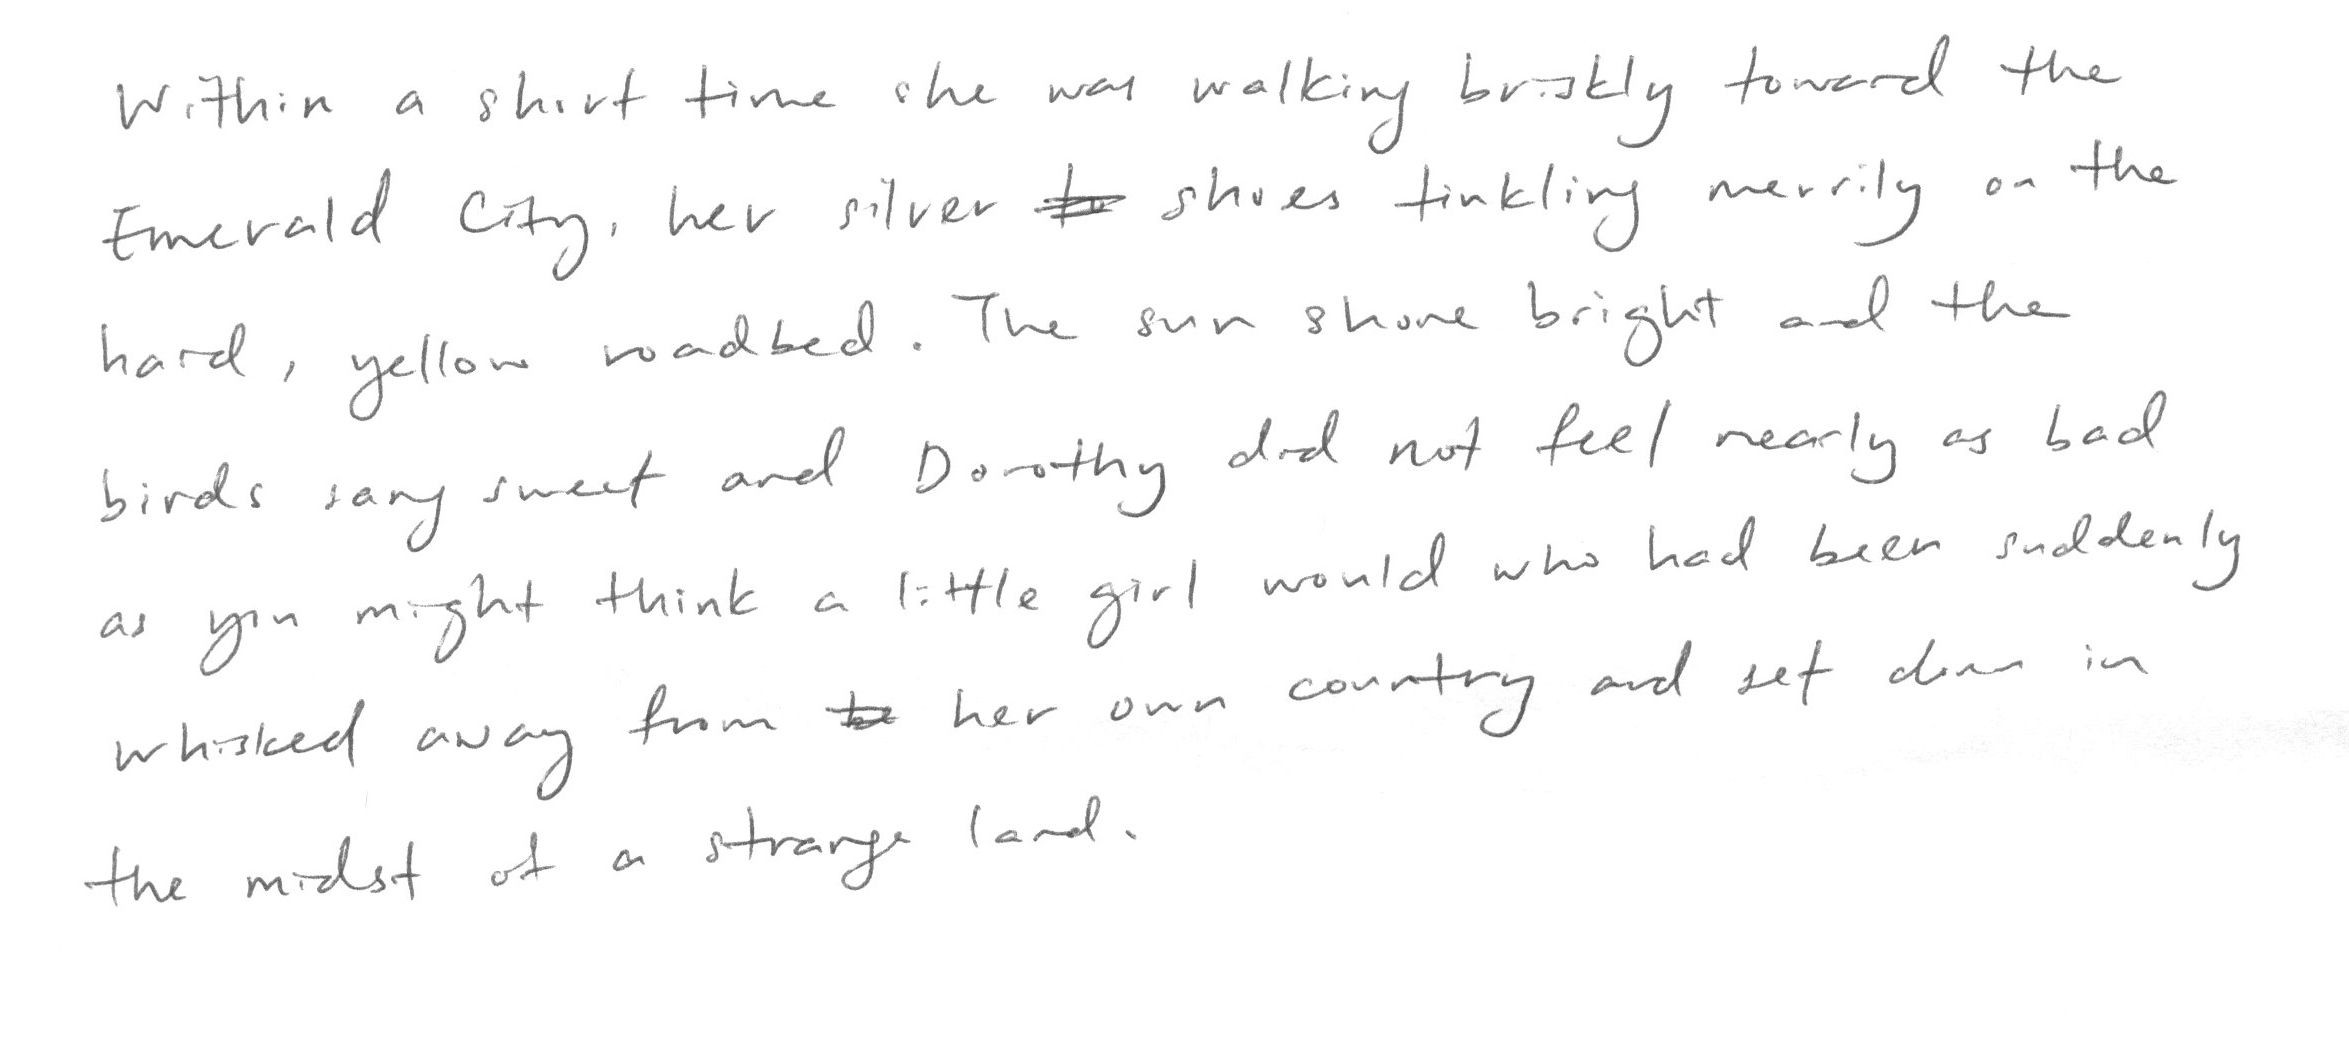 Within a short time she was walking briskly toward the
Emerald City, her silver shoes tinkling merrily on the
hard, yellow roadbed. The sun shone bright and the
birds sang sweet and Dorothy did not feel nearly as bad
as you might think a little girl would who had been suddenly
whisked away from her own country and set down in
the midst of a strange land.